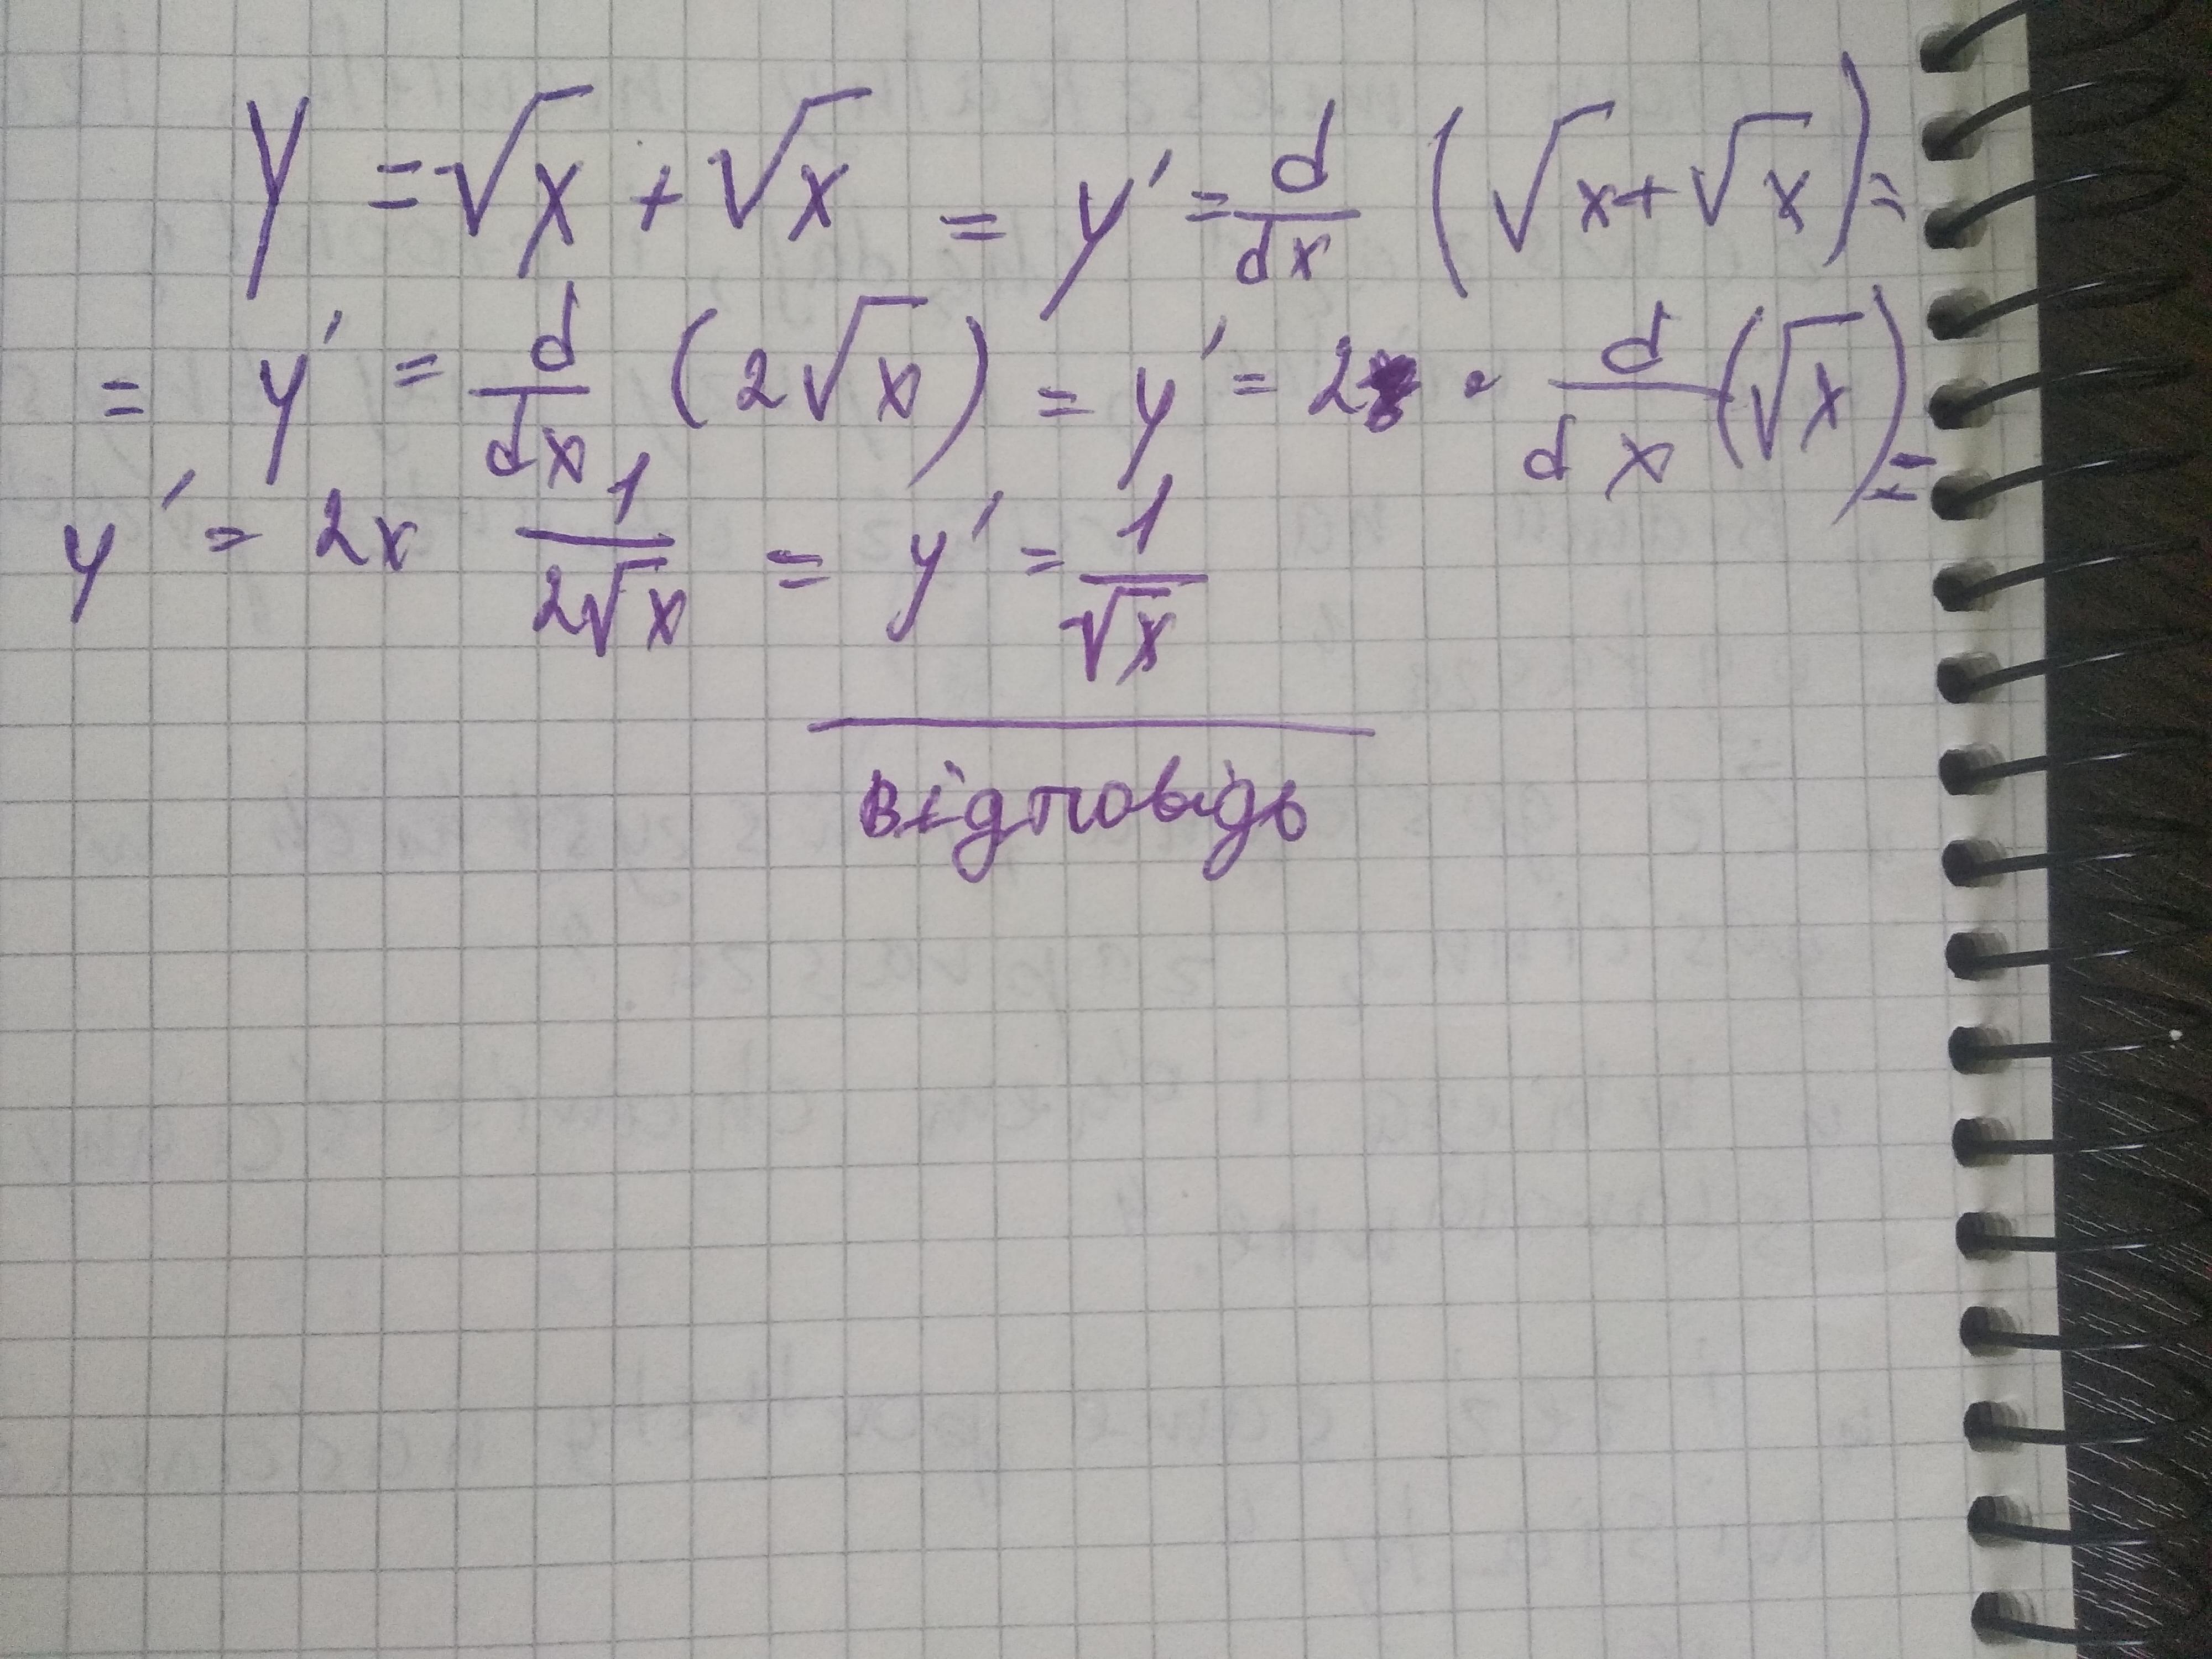 y = √x + √x = y' = d/dx (√x + √x) =
= y' = d/dx (2√x) = y' = 2 · d/dx (√x) =
y' = 2x 1/2√x = y' = 1/√x
відповідь